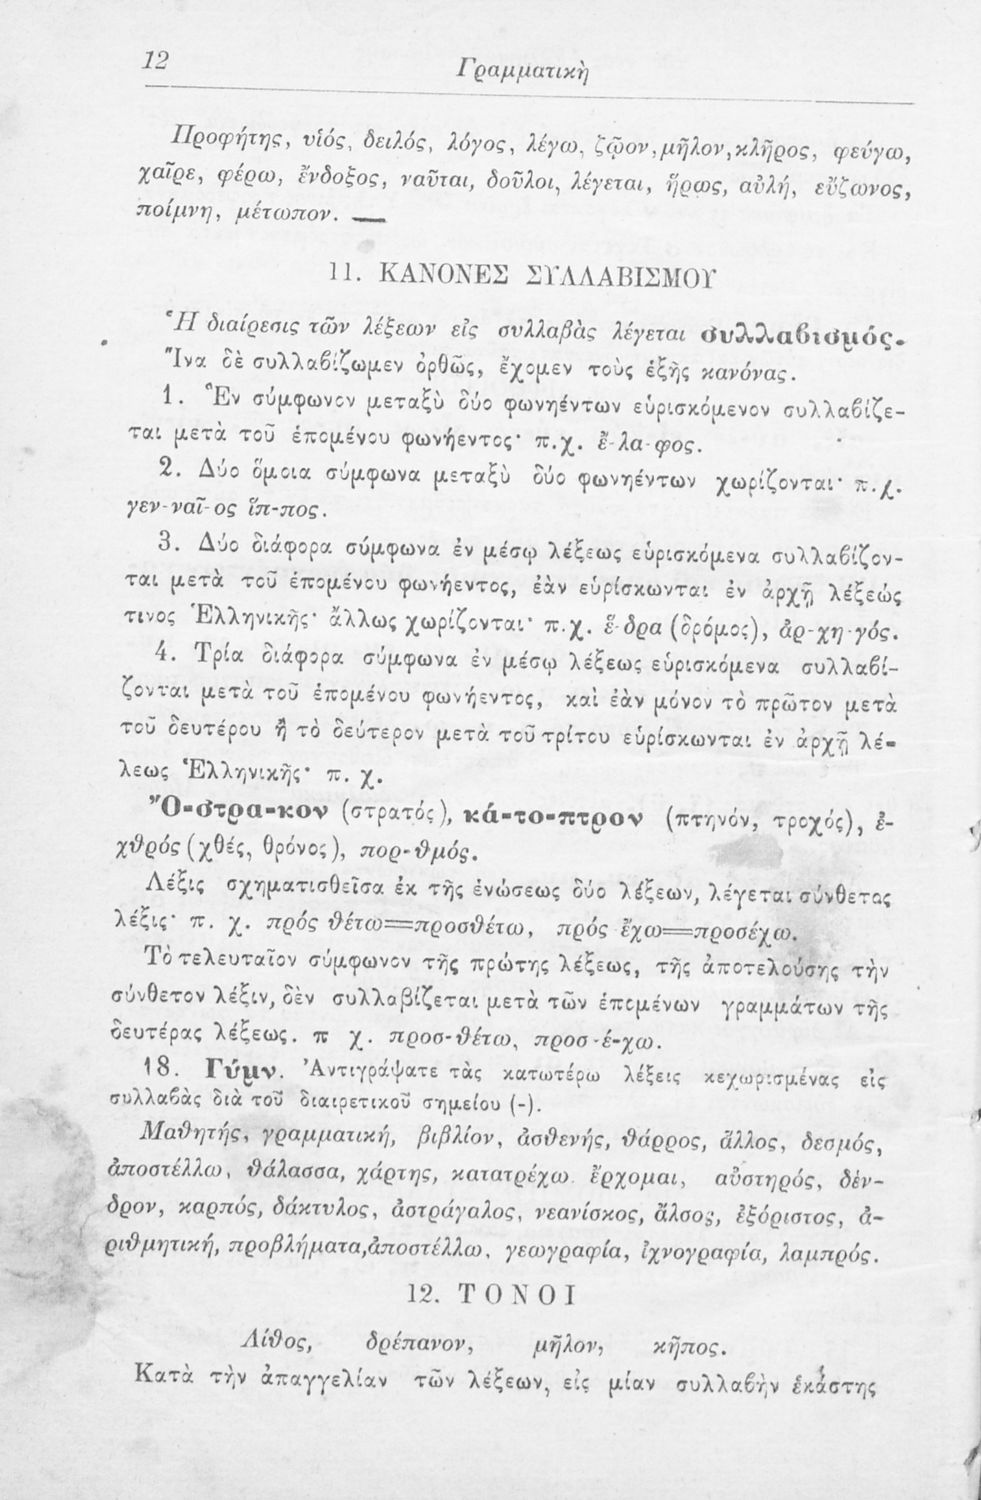 12
Γραμματικὴ
Προφήτης, υἱός, δειλός, λόγος, λέγω, ζῷον, μῆλον, κλῆρος, φεύγω,
χαῖρε, φέρω, ἔνδοξος, ναῦται, δοῦλοι, λέγεται, ἥρως, αὐλή, εὔζωνος,
ποίμνη, μέτωπον. —
11. ΚΑΝΟΝΕΣ ΣΥΛΛΑΒΙΣΜΟΥ
Ἡ διαίρεσις τῶν λέξεων εἰς συλλαβὰς λέγεται συλλαβισμός.
Ἵνα δὲ συλλαβίζωμεν ὀρθῶς, ἔχομεν τοὺς ἑξῆς κανόνας.
1. Ἓν σύμφωνον μεταξὺ δύο φωνηέντων εὑρισκόμενον συλλαβίζε-
ται μετὰ τοῦ ἑπομένου φωνήεντος· π.χ. ἔ-λα-φος.
2. Δύο ὅμοια σύμφωνα μεταξὺ δύο φωνηέντων χωρίζονται· π.χ.
γεν-ναῖ-ος ἵπ-πος.
3. Δύο διάφορα σύμφωνα ἐν μέσῳ λέξεως εὑρισκόμενα συλλαβίζον-
ται μετὰ τοῦ ἑπομένου φωνήεντος, ἐὰν εὑρίσκωνται ἐν ἀρχῇ λέξεώς
τινος Ἑλληνικῆς· ἄλλως χωρίζονται· π.χ. ἕ-δρα (δρόμος), ἀρ-χη-γός.
4. Τρία διάφορα σύμφωνα ἐν μέσῳ λέξεως εὑρισκόμενα συλλαβί-
ζονται μετὰ τοῦ ἑπομένου φωνήεντος, καὶ ἐὰν μόνον τὸ πρῶτον μετὰ
τοῦ δευτέρου ἢ τὸ δεύτερον μετὰ τοῦ τρίτου εὑρίσκωνται ἐν ἀρχῇ λέ-
λεως Ἑλληνικῆς· π. χ.
Ὄ-στρα-κον (στρατός), κά-το-πτρον (πτηνόν, τροχός), ἐ-
χθρός (χθές, θρόνος), πορ-θμός.
Λέξις σχηματισθεῖσα ἐκ τῆς ἑνώσεως δύο λέξεων, λέγεται σύνθετος
λέξις· π. χ. πρός θέτω=προσθέτω, πρός ἔχω=προσέχω.
Τὸ τελευταῖον σύμφωνον τῆς πρώτης λέξεως, τῆς ἀποτελούσης τὴν
σύνθετον λέξιν, δὲν συλλαβίζεται μετὰ τῶν ἑπομένων γραμμάτων τῆς
δευτέρας λέξεως. π χ. προσ-θέτω, προσ-έ-χω.
18. Γύμν. Ἀντιγράψατε τὰς κατωτέρω λέξεις κεχωρισμένας εἰς
συλλαβὰς διὰ τοῦ διαιρετικοῦ σημείου (-).
Μαθητής, γραμματική, βιβλίον, ἀσθενής, θάρρος, ἄλλος, δεσμός,
ἀποστέλλω, θάλασσα, χάρτης, κατατρέχω. ἔρχομαι, αὐστηρός, δέν-
δρον, καρπός, δάκτυλος, ἀστράγαλος, νεανίσκος, ἄλσος, ἐξόριστος, ἀ-
ριθμητική, προβλήματα, ἀποστέλλω, γεωγραφία, ἰχνογραφία, λαμπρός.
12. ΤΟΝΟΙ
Λίθος, δρέπανον, μῆλον, κῆπος.
Κατὰ τὴν ἀπαγγελίαν τῶν λέξεων, εἰς μίαν συλλαβὴν ἑκάστης